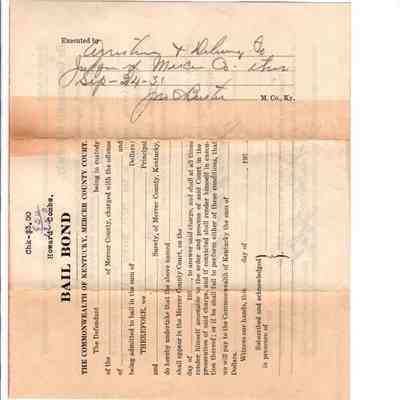 Executed by arresting & Delivery to
Judge of Mercer Co. this
Sep-24-31
M. Co., Ky.
Chk-$3.00
Howard Coombs.
BAIL BOND
THE COMMONWEALTH OF KENTUCKY, MERCER COUNTY COURT.
The Defendant being in custody
of the of Mercer County, charged with the offense
of and
being admitted to bail in the sum of Dollars;
THEREFORE, we Principal
and Surety, of Mercer County, Kentucky,
do hereby undertake that the above named
shall appear in the Mercer County Court, on the
day of 193 , to answer said charge, and shall at all times
render himself amenable to the order and process of said Court in the
prosecution of said charge, and if convicted shall render himself in execu-
tion thereof; or if he shall fail to perform either of these conditions, that
we will pay to the Commonwealth of Kentucky the sum of
Dollars.
Witness our hands, this day of 193
Submitted and acknowledged
in presence of